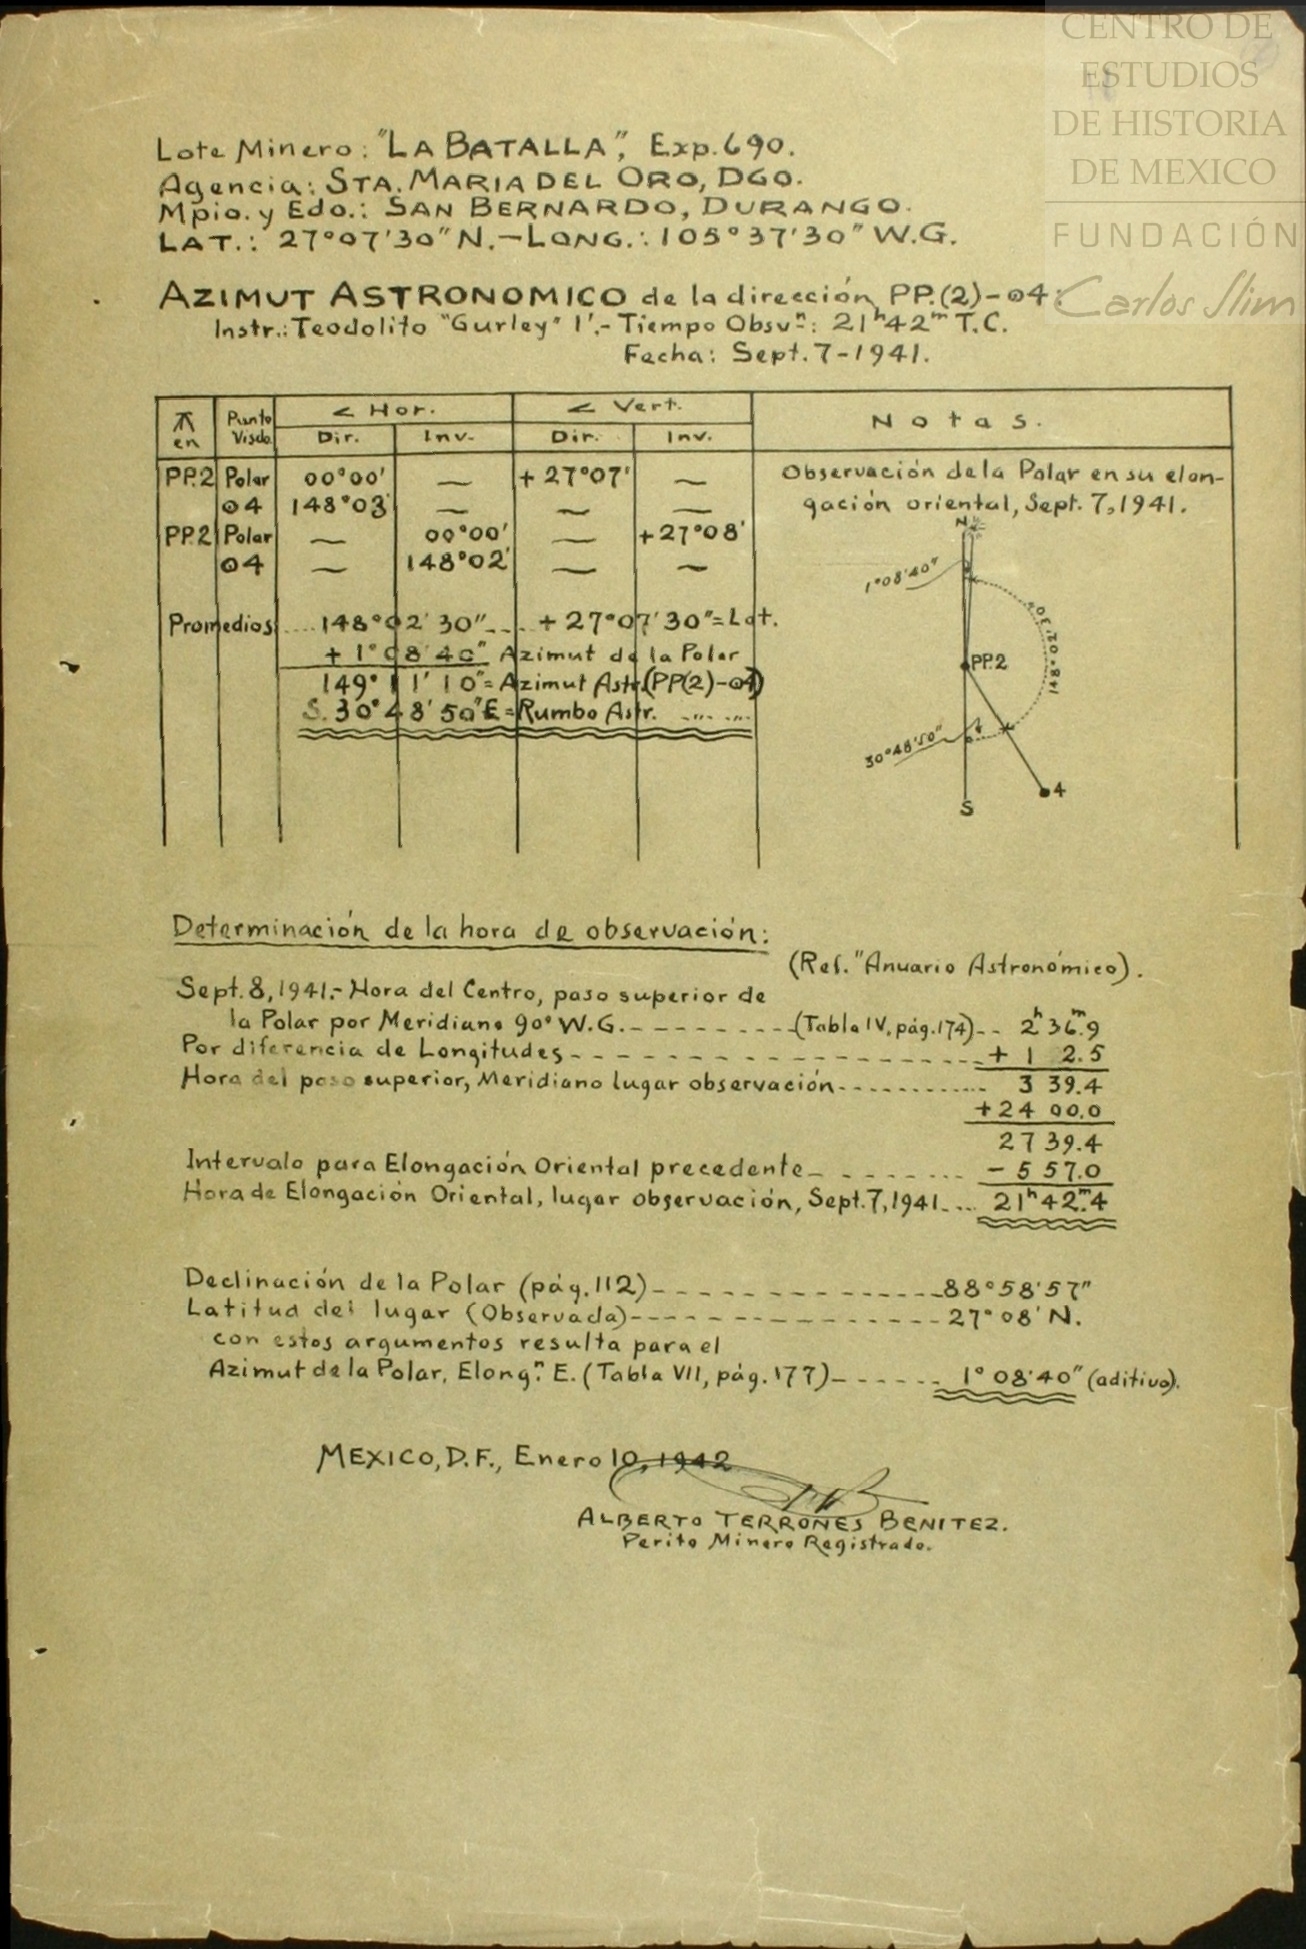 CENTRO DE
ESTUDIOS
DE HISTORIA
DE MEXICO
FUNDACIÓN
Carlos Slim
Lote Minero: "LA BATALLA", Exp. 690.
Agencia: STA. MARIA DEL ORO, DGO.
Mpio. y Edo.: SAN BERNARDO, DURANGO.
LAT.: 27°07'30" N. – LONG.: 105°37'30" W.G.
AZIMUT ASTRONOMICO de la dirección PP.(2)-⊙4:
Instr.: Teodolito "Gurley" 1'.- Tiempo Obsvⁿ: 21ʰ42ᵐ T.C.
Fecha: Sept. 7-1941.
en Punto Visdo. < Hor. < Vert. Notas.
Dir. Inv. Dir. Inv.
PP.2 Polar 00°00' — +27°07' — Observación de la Polar en su elon-
⊙4 148°03' — — — gación oriental, Sept. 7, 1941.
PP.2 Polar — 00°00' — +27°08'
⊙4 — 148°02' — —
Promedios .... 148°02'30" .... +27°07'30" = Lat.
+ 1°08'40" Azimut de la Polar
149°11'10" = Azimut Astr. (PP(2)-⊙4)
S. 30°48'50" E = Rumbo Astr. ... ...
N.
1°08'40"
148°02'30"
PP.2
30°48'50"
4
S
Determinación de la hora de observación:
(Ref. "Anuario Astronómico).
Sept. 8, 1941.- Hora del Centro, paso superior de
la Polar por Meridiano 90° W.G. - - - - (Tabla IV, pág. 174) - - 2ʰ 36ᵐ.9
Por diferencia de Longitudes - - - - + 1 2.5
Hora del paso superior, Meridiano lugar observación - - - - 3 39.4
+24 00.0
27 39.4
Intervalo para Elongación Oriental precedente - - - - - 5 57.0
Hora de Elongación Oriental, lugar observación, Sept. 7, 1941 .... 21ʰ 42ᵐ.4
Declinación de la Polar (pág. 112) - - - - 88°58'57"
Latitud del lugar (Observada) - - - - 27°08' N.
con estos argumentos resulta para el
Azimut de la Polar, Elongⁿ. E. (Tabla VII, pág. 177) - - - - 1°08'40" (aditivo).
MEXICO, D.F., Enero 10, 1942
ALBERTO TERRONES BENITEZ.
Perito Minero Registrado.